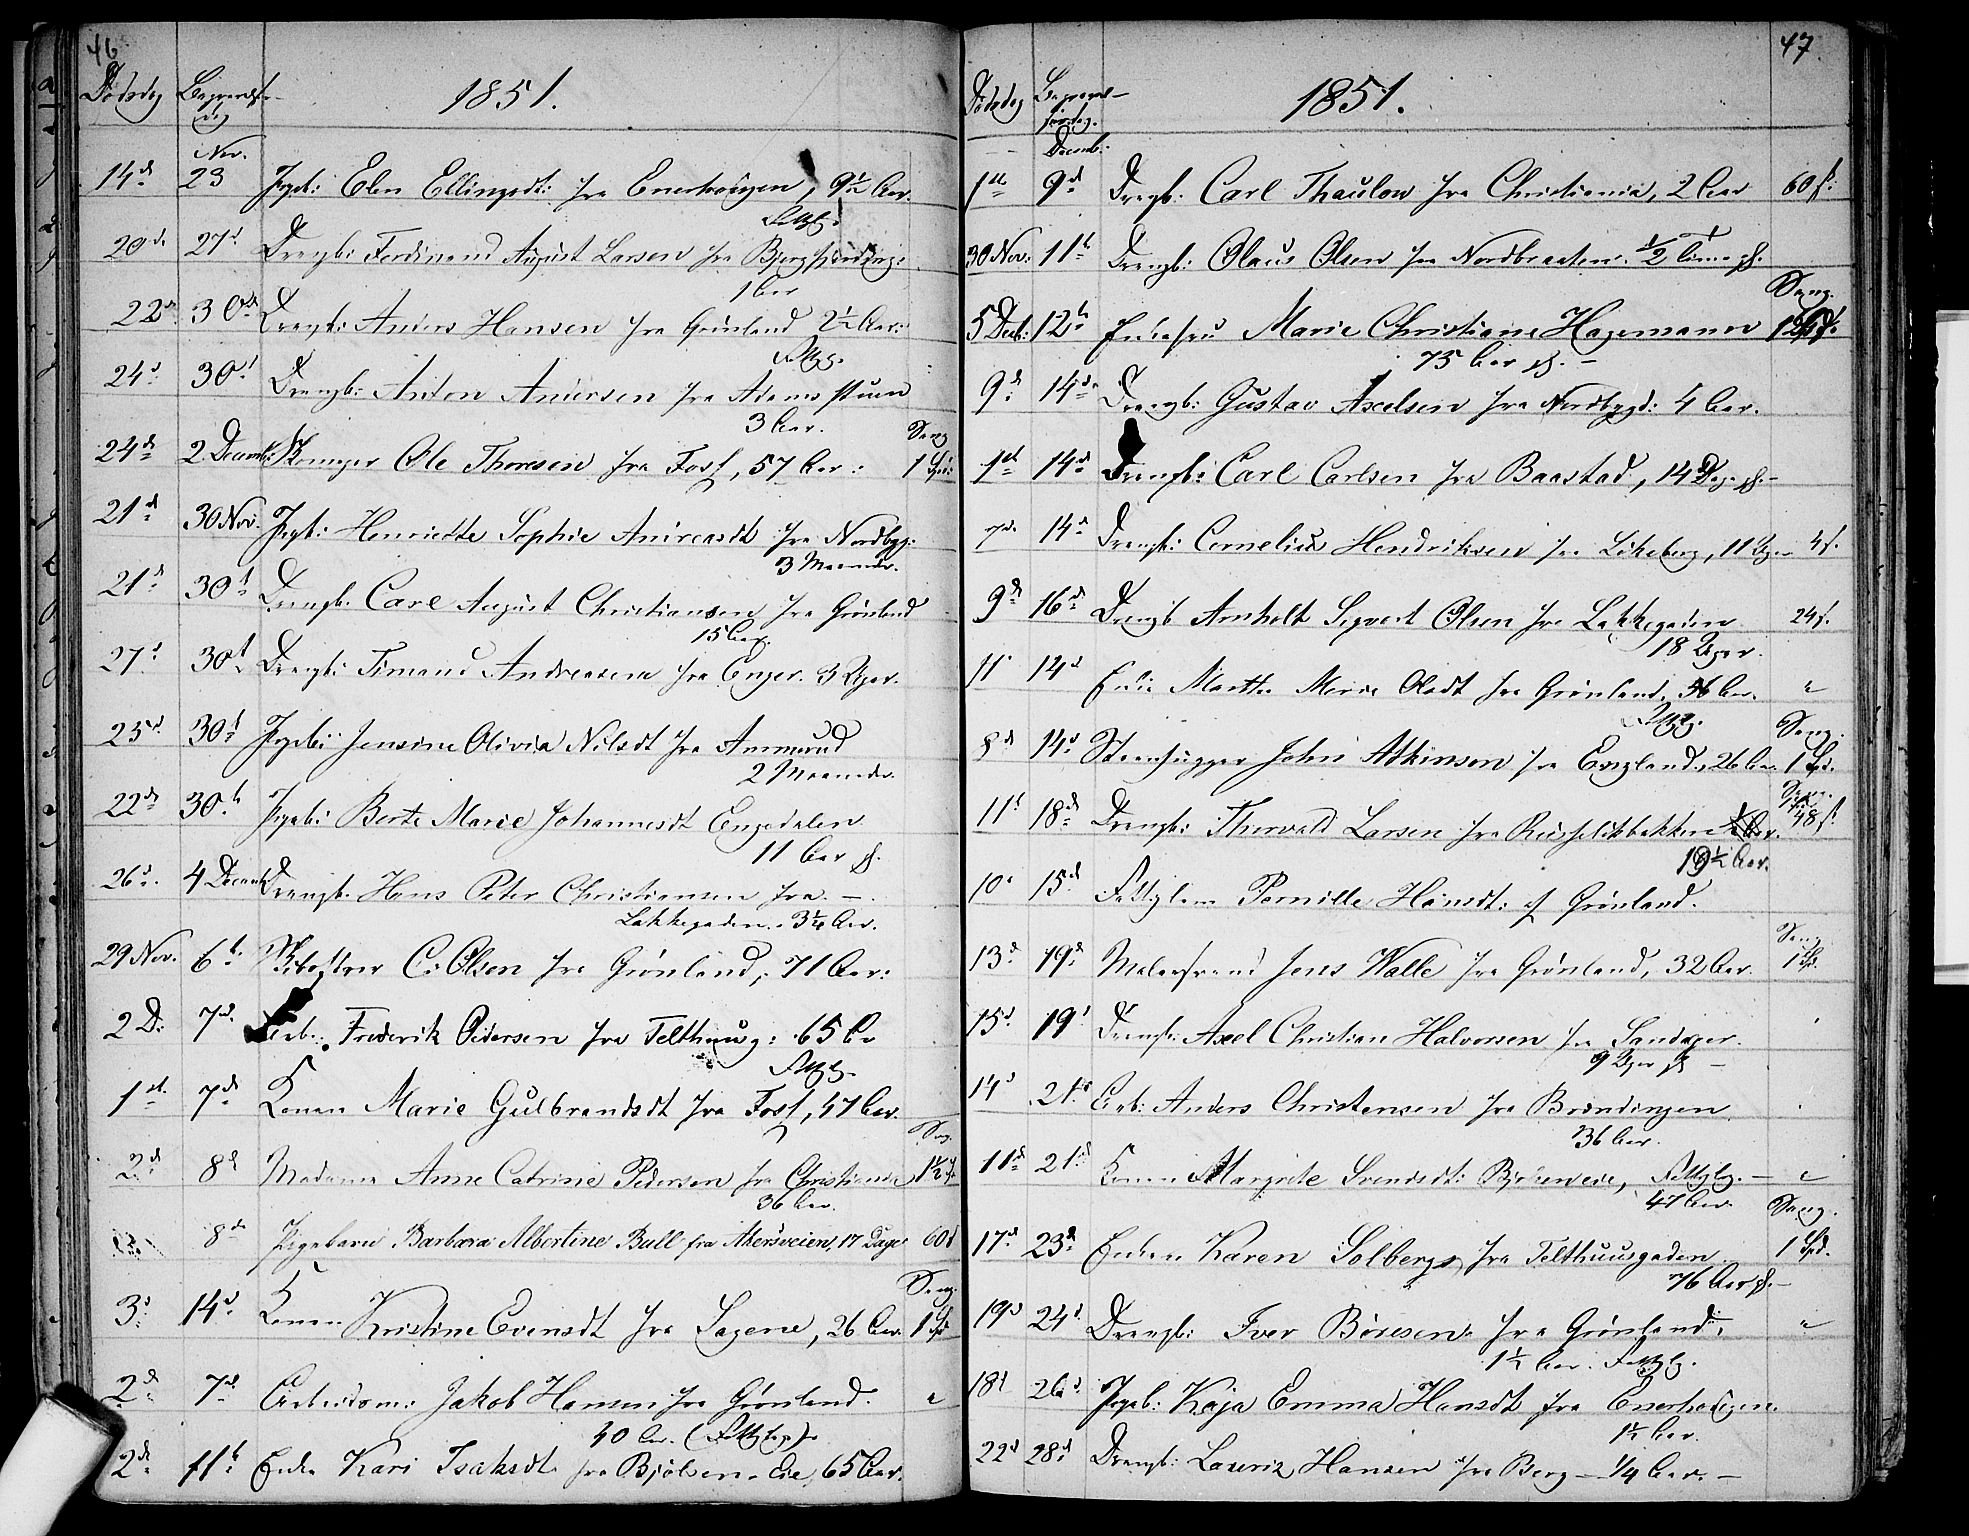 46
Dødsdag Begravelses-
dag
1851.
Nov.
14d 23 Pigeb: Elen Ellingsdt: fra Enerhougen, 9½ Aar.
Fattg:
20d 27d Drengb: Ferdinand August Larsen fra Bjergfjerding:
1 Aar
22d 30d Drengb: Anders Hansen fra Grønland 2½ Aar:
Fattg.
24d 30d Drengb: Anton Andersen fra Adamsstuen
3 Aar.
Sang
24d 2 Decemb: Ole Thoresen fra Foss, 57 Aar: 1 Spd:
21d 30 Nov. Pigb: Henriette Sophie Andreasdt fra Nordbyg:
3 Maaneder.
21d 30d Drengb. Carl August Christiansen fra Grønland
15 Aar.
27d 30d Drengb: Timand Andreasen fra Enger. 3 Uger.
25d 30d Pigeb: Jensine Olivia Nilsdt fra Ammerud
2 Maaneder
22d 30d Pigeb: Berte Marie Johannesdt Engedalen
11 Aar
26d. 4 Decemb: Drengb. Hans Peter Christiansen fra —.
Lakkegaden. 3¼ Aar.
29 Nov. 6t C: Olsen fra Grønland, 71 Aar:
2 D: 7d. Arb: Frederik Pedersen fra Telthuusg: 65 Aar
Fattg.
1st. 7d Konen Marie Gulbrandsdt fra Foss, 47 Aar.
Sang
2d 8d Madame Anne Catrine Pedersen fra Christiania 1½
36 Aar.
8d Pigebarn Barbara Albertine Ball fra Akersveien, 17 Dage 60
Sang.
3d 14d. Konen Kristine Evensdt fra Sagene, 26 Aar. 1 Spd
2d 7d Arbeidsm: Jakob Hansen fra Grønland.
40 Aar. (Fattg).
2d 11t Enke Kari Isaksdt fra Bjølsen-Eie, 65 Aar.
47.
Dødsdag Begravel-
sesdag.
1851.
Decemb:
1ste 9d Drengb: Carl Thaulow fra Christiania, 2 Aar 60 s:
30 Nov: 11t Drengb: Olaus Olsen fra Nordbraaten. ½ Time
Sang.
5 Decb: 12t Enkefru Marie Christiane Hagemann
75 Aar
9d 14d Drengb: Gustav Axelsen fra Nordbygd: 4 Aar.
1st 14d Drengb: Carl Carlsen fra Baastad, 14 Dage
7d. 14d Drengb: Cornelius Hendriksen fra Løkeberg, 11 Uger 4 s.
9d 16d Drengb Arnholt Sigvert Olsen fra Lakkegaden 24 s.
18 Uger.
11 14d Enke Marthe Marie Olsdt fra Grønland, 56 Aar.
Fattg. Sang.
8d 14d Steenhugger John Atkinson fra England, 26 Aar. 1 Spd.
Sang.
11t 18d Drengb: Thorvald Larsen fra Ruseløkbakken 48 s.
10½ Aar.
10. 15d Fattiglem Pernille Hansdt: af Grønland.
Sang
13d 19d Malersvend Jens Walle fra Grønland, 32 Aar. 1 Spd.
15d 19d Drengb: Axel Christian Halvorsen fra Sandager.
9 Uger
14d 21d Arb: Anders Christensen fra Brøndingen
36 Aar.
11d 21d Konen Margrete Svendsdt: Bjølseneie, Fattg.—
47 Aar. Sang.
17d 23d Enken Karen Solberg fra Telthuusgaden 1 Spd.
76 Aar
19d 24d Drengb: Iver Børesen fra Grønland,
1½ Aar. Fattg.
18d 26d. Pigeb: Kaja Emma Hansdt fra Enerhougen.
1½ Aar.
22d 28d Drengb: Lauriz Hansen fra Berg — ¼ Aar. —